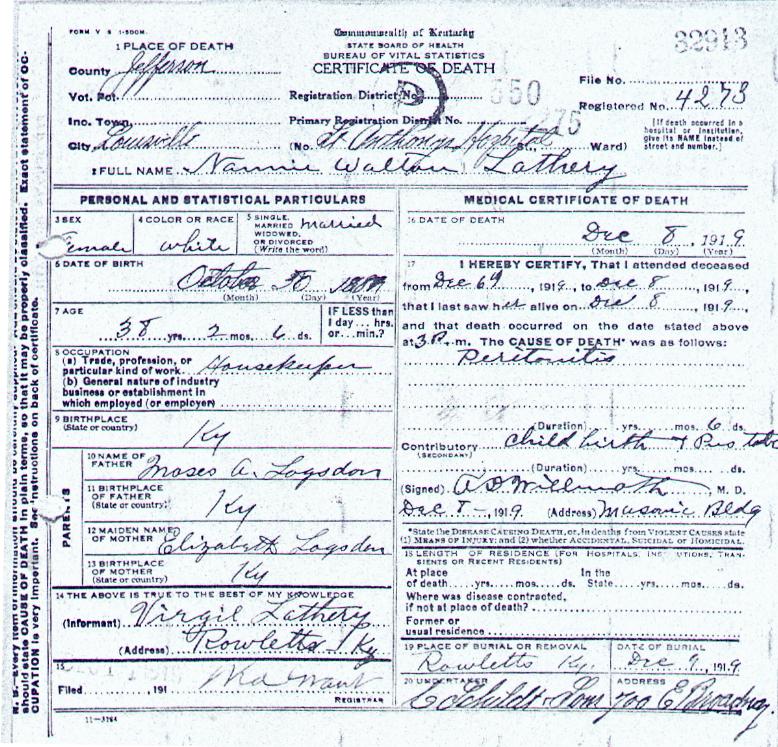 FORM V S 1-500M.
Commonwealth of Kentucky
STATE BOARD OF HEALTH
BUREAU OF VITAL STATISTICS
CERTIFICATE OF DEATH
32913
1 PLACE OF DEATH
County Jefferson
Vot. Pct.
Inc. Town
City Louisville
Registration District No. 550
Primary Registration District No. 275
(No. St Anthonys Hospital St., Ward)
File No.
Registered No. 4273
[If death occurred in a
hospital or institution,
give its NAME instead of
street and number.]
2 FULL NAME Nannie Walton Lathery
PERSONAL AND STATISTICAL PARTICULARS
3 SEX
Female
4 COLOR OR RACE
white
5 SINGLE,
MARRIED
WIDOWED,
OR DIVORCED
(Write the word)
Married
6 DATE OF BIRTH
October
(Month) (Day) (Year)
7 AGE
38 yrs. 2 mos. 6 ds.
IF LESS than
1 day... hrs.
or... min.?
8 OCCUPATION
(a) Trade, profession, or
particular kind of work Housekeeper
(b) General nature of industry
business or establishment in
which employed (or employer)
9 BIRTHPLACE
(State or country)
Ky
PARENTS
10 NAME OF
FATHER Moses A. Logsdon
11 BIRTHPLACE
OF FATHER
(State or country) Ky
12 MAIDEN NAME
OF MOTHER Elizabeth Logsdon
13 BIRTHPLACE
OF MOTHER
(State or country) Ky
14 THE ABOVE IS TRUE TO THE BEST OF MY KNOWLEDGE
(Informant) Virgil Lathery
(Address) Rowletts Ky
15
Filed , 191
REGISTRAR
11-3184
MEDICAL CERTIFICATE OF DEATH
16 DATE OF DEATH
Dec 8, 1919
(Month) (Day) (Year)
17 I HEREBY CERTIFY, That I attended deceased
from Dec , 1919, to Dec 8, 1919,
that I last saw her alive on Dec 8, 1919,
and that death occurred on the date stated above
at 3P.m. The CAUSE OF DEATH* was as follows:
Peritonitis
(Duration) yrs. mos. 6 ds.
Contributory Child birth + Pus
(SECONDARY)
(Duration) yrs. mos. ds.
(Signed) , M. D.
Dec 8-, 1919. (Address) Masonic Bldg
*State the DISEASE CAUSING DEATH, or, in deaths from VIOLENT CAUSES state
(1) MEANS OF INJURY; and (2) whether ACCIDENTAL, SUICIDAL or HOMICIDAL.
18 LENGTH OF RESIDENCE (FOR HOSPITALS, INSTITUTIONS, TRAN-
SIENTS OR RECENT RESIDENTS)
At place In the
of death yrs. mos. ds. State yrs. mos. ds.
Where was disease contracted,
if not at place of death?
Former or
usual residence
19 PLACE OF BURIAL OR REMOVAL
Rowletts Ky.
DATE OF BURIAL
Dec 9, 1919
20 UNDERTAKER
Schildt + Sons
ADDRESS
700 E Broadway.
should state CAUSE OF DEATH in plain terms, so that it may be properly classified. Exact statement of OC-
CUPATION is very important. See instructions on back of certificate.